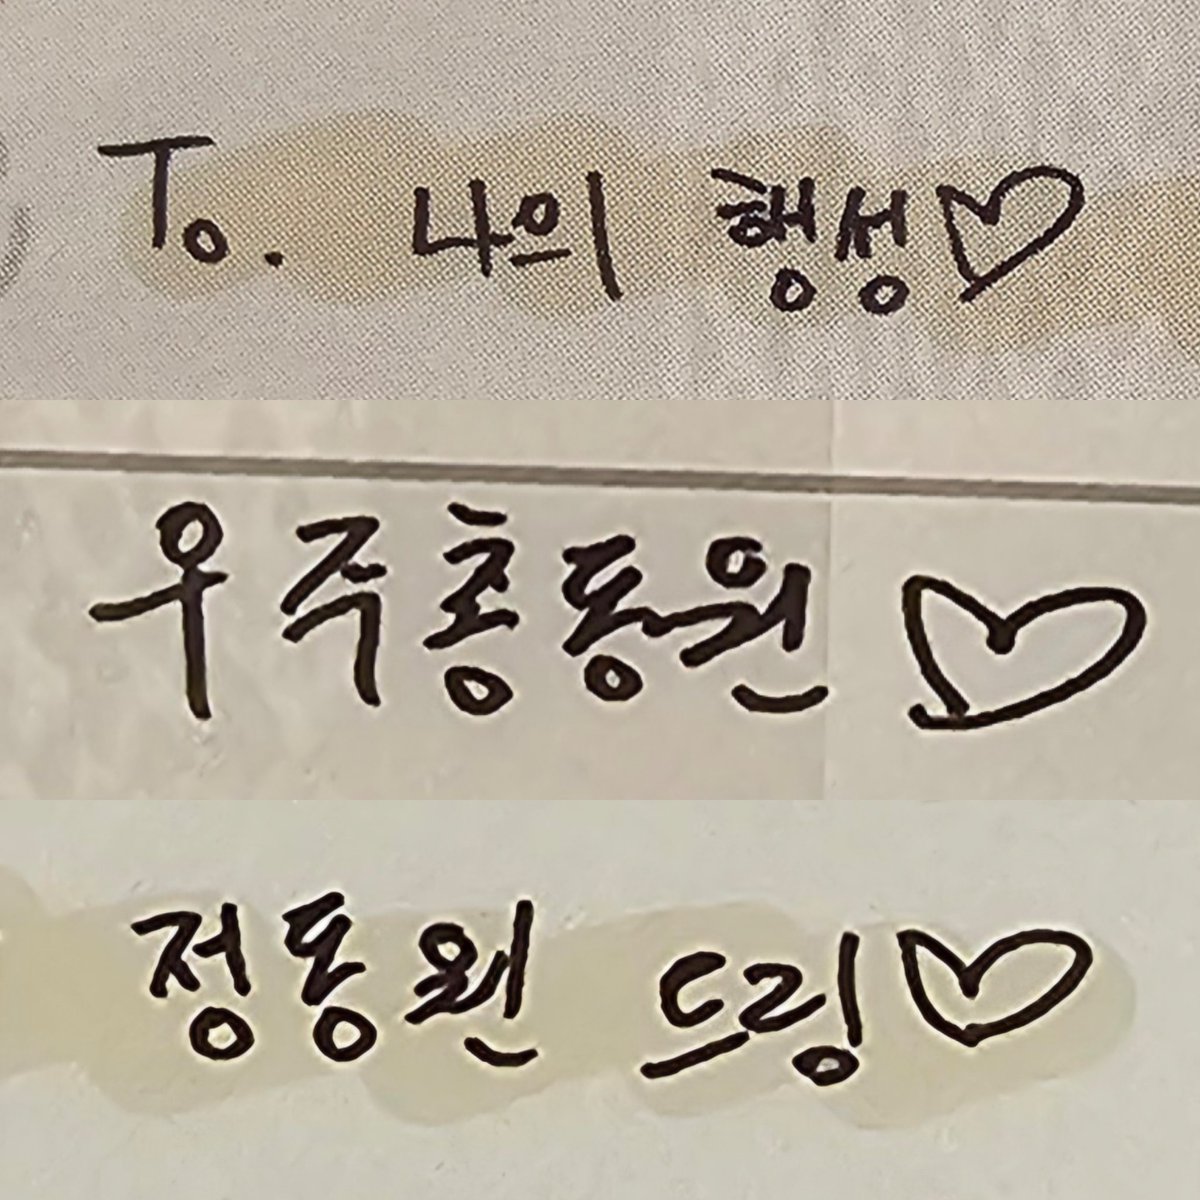 To. 나의 행성♡
우주총동원♡
정동원 드림♡